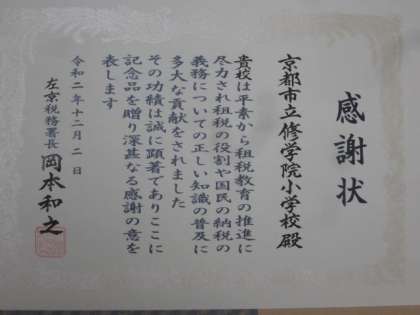 感謝状
京都市立修学院小学校殿
貴校は平素から租税教育の推進に
尽力され租税の役割や国民の納税の
義務についての正しい知識の普及に
多大な貢献をされました
その功績は誠に顕著でありここに
記念品を贈り深甚なる感謝の意を
表します
令和二年十二月二日
左京税務署長 岡本和之